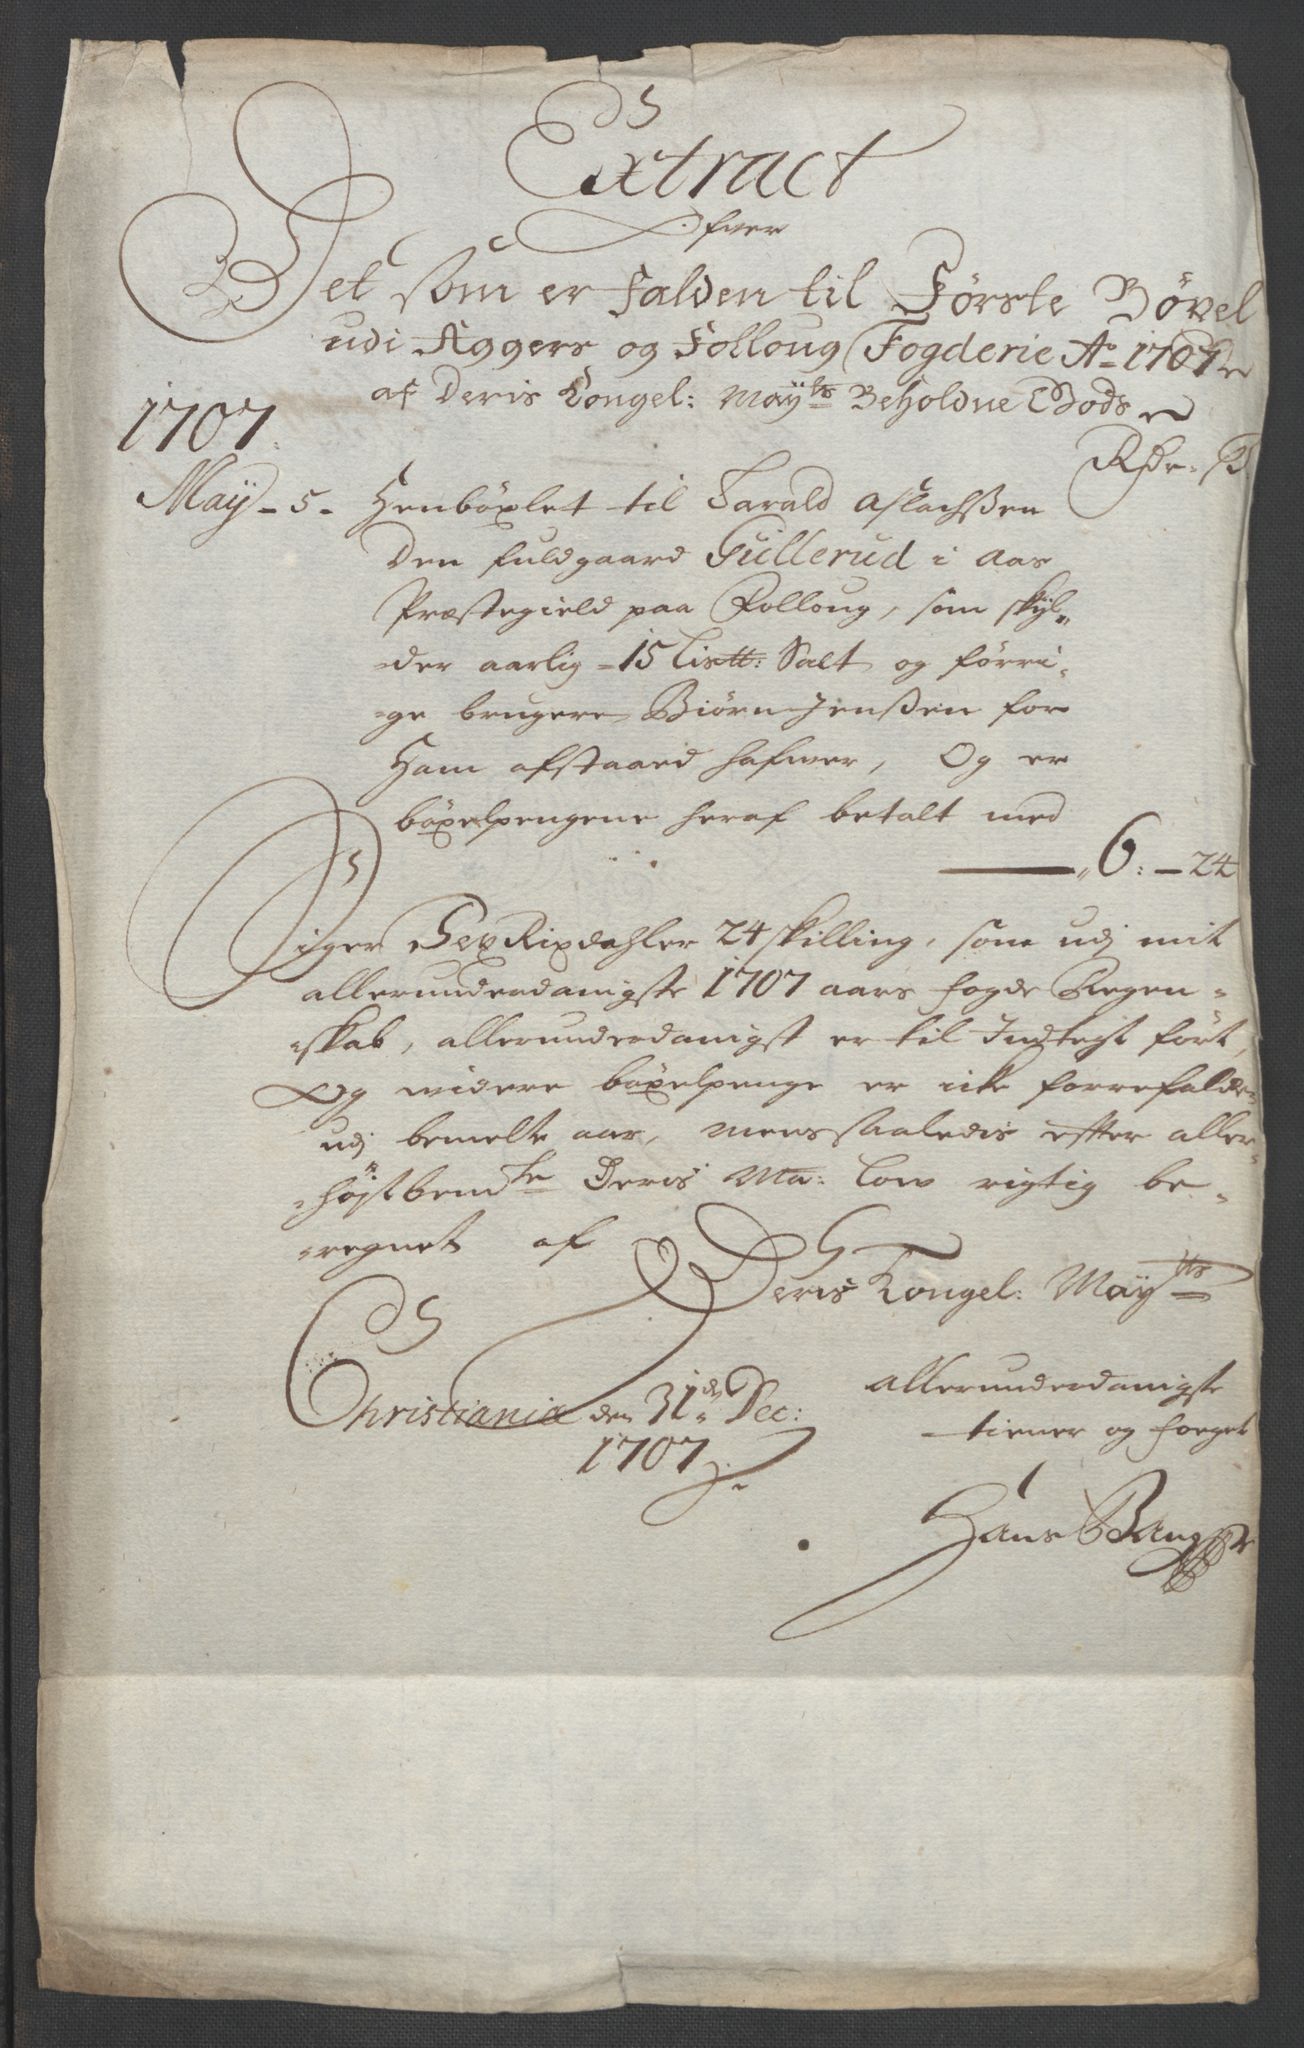 Extract
ofwer
Det som er falden til Første Böxel
udi Aggers og Folloug Fogderie Ao 1707
af Deris Kongel: Mayts Beholdne Gods
1707
Rdr. S
May - 5 - Henböxlet til Tarald Aslachssen
Den fuldgaard Gullerud i Aas
Præstegield paa Folloug, som skyl-
der aarlig - 15 Listt: Salt og förri-
ge brugere Biörn Jenssen for
Ham afstaaed hafwer, Og er
böxelpengene heraf betalt med
6: - 24
Siger Sex Rixdahler 24 skilling, som udj mit
allerunderdanigste 1707 aars fogde Regen-
skab, allerunderdanigst er til Indtegt fört,
Og widere böxelpenge er icke forrefalden
udj bemelte aar, mens saaledis effter aller-
höjstbemte Deris Ma: Low rigtig be-
regnet af
Deris Kongel: Mayts
allerunderdanigste
tiener og foeget
Christiania den 31de Dec:
1707
Hans Bang